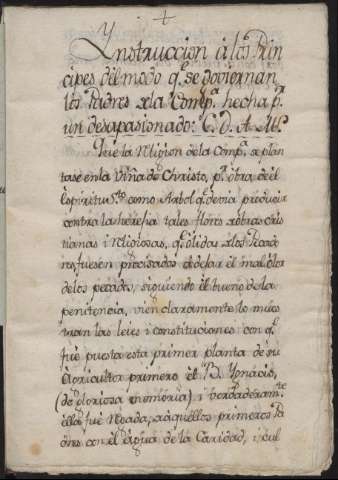 Ynstruccion á los Prin
cipes del modo q̃ se goviernan
los Padres de la Comp.ª hecha p.r
un desapasionado: C. D. A. M.e
Que la Religion de la Comp.ª se plan
tase en la Viña de Christo, p.r obra de el
Espiritu S.to como Arbol q̃ devia producir
contra la heregia tales flores de obras cris
tianas i Religiosas, q̃ olidas de los Pecado
res fuesen precisados á dejar el mal olor
de los pecados, siguiendo el bueno de la
penitencia, vien claramente lo mues
tran las leies i constituciones con q̃
fué puesta esta primer planta de su
Agricultor primero el P. Ygnacio,
(de gloriosa memoria) i verdaderam.te
ella fué Regada, de aquellos primeros Pa
dres con el Agua de la Caridad, i cul